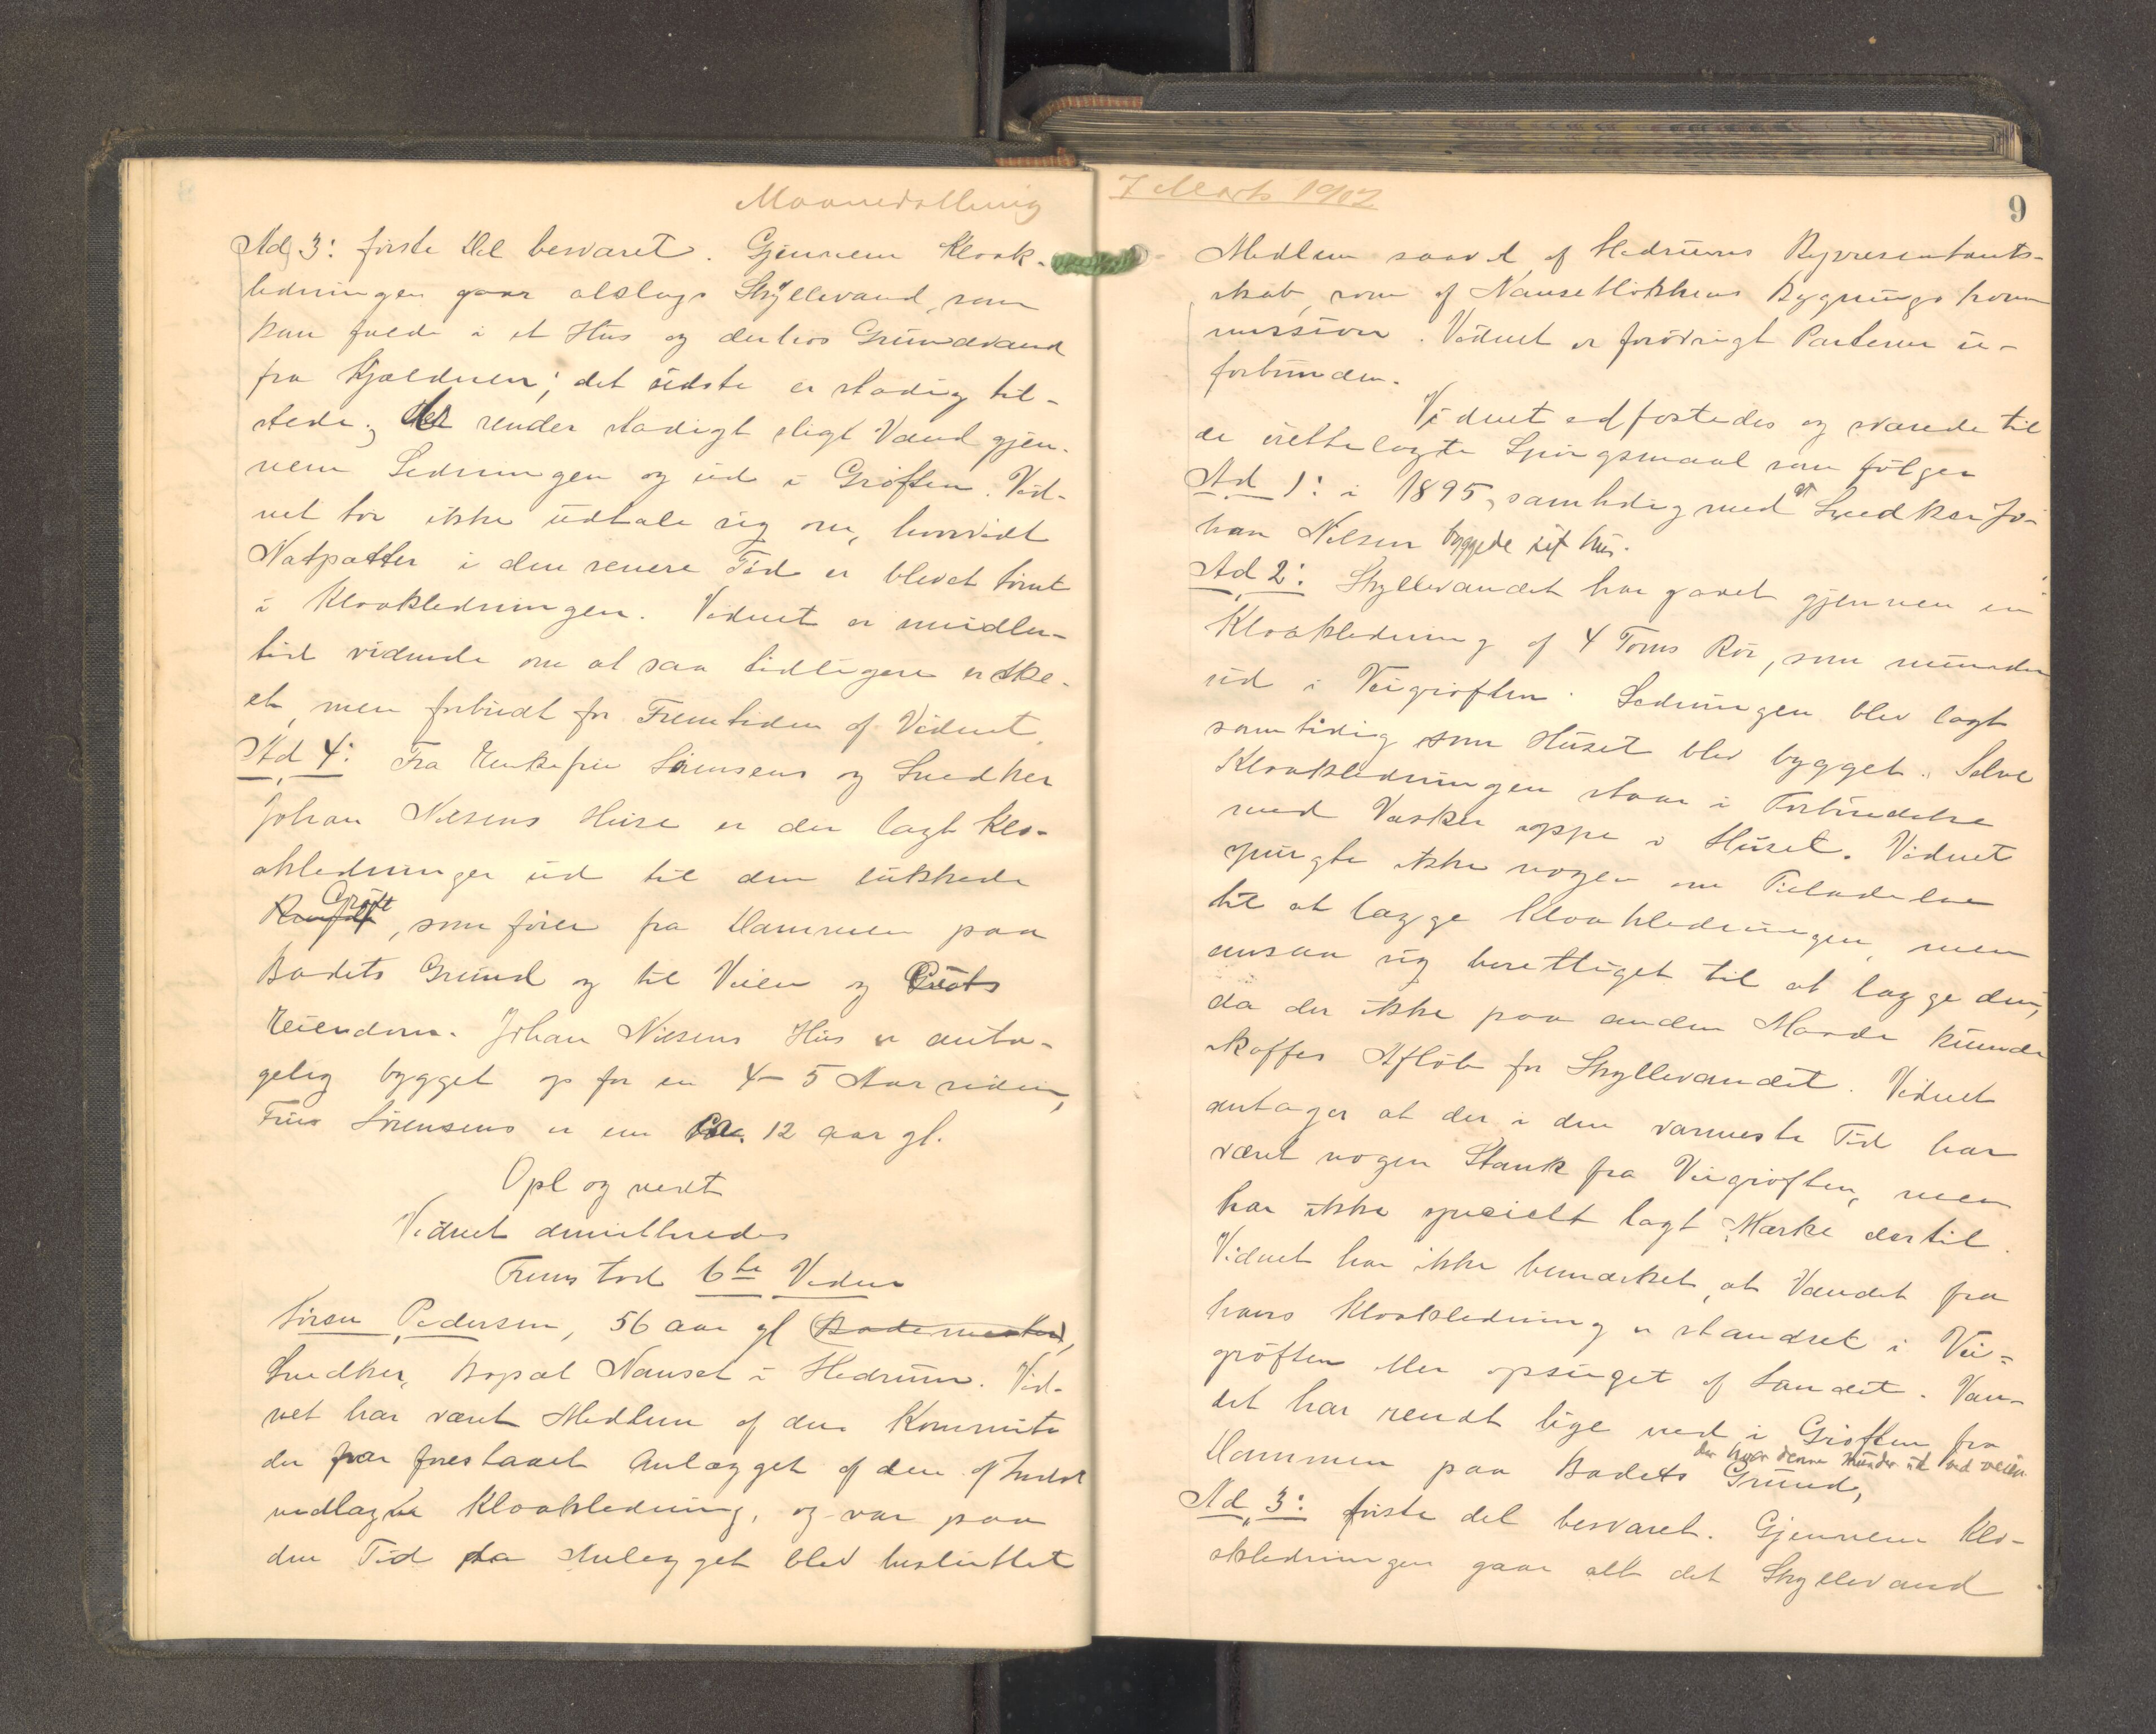 Maanedsthing
Ad 3: første Del besvaret. Gjennem Kloak-
ledningen gaar alslags Skyllevand, som
kan falde i et Hus og derhos Grundvand
fra Kjælderen; det sidste er stadig til-
stede; der render stadigt sligt Vand gjen-
nem Ledningen og ud i Grøften. Vid-
net tør ikke udtale sig om, hvorvidt
Natpotter i den senere Tid er blevet tømt
i Kloakledningen. Vidnet er imidler-
tid vidende om at saa tidligere er ske-
et, men forbudt for Fremtiden af Vidnet.
Ad 4: Fra Enkefru Sørensens og Snedker
Johan Nilsens Huse er der lagt Klo-
akledninger ud til den lukkede
Grøft, som fører fra Dammen paa
Badets Grund og til Veien og
Eiendom. Johan Nilsens Hus er anta-
gelig bygget op for en 4-5 Aar siden,
Fru Sørensens er en ca. 12 aar gl.
Opl og vedt
Vidnet dimitteredes
Fremstod 6te Vidne
Søren Pedersen, 56 aar gl Bademester,
Snedker, Bopæl Nanset i Hedrum. Vid-
net har været Medlem af den Komite
der har forestaaet Anlægget af den af
nedlagte Kloakledning, og var paa
den Tid da Anlægget blev besluttet
7 Marts 1902
9
Medlem saavel af Hedrums Repræsentant-
skab, som af Nansetklokkens Bygningskom
mission. Vidnet er forøvrigt Parterne u-
forbunden.
Vidnet edfæstedes og svarede til
de irettelagte Spørgsmaal som følger
Ad 1: i 1895, samtidig med at Snedker Jo-
han Nilsen byggede sit hus.
Ad 2: Skyllevandet har gaaet gjennem en
Kloakledning af 4 Toms Rør, som munder
ud i Veigrøften. Ledningen blev lagt
samtidig som Huset blev bygget. Selve
Kloakledningen staar i Forbindelse
med Vasker oppe i Huset. Vidnet
spurgte ikke nogen om Tilladelse
til at lægge Kloakledningen, men
ansaa sig berettiget til at lægge den,
da der ikke paa anden Maade kunde
skaffes Afløb for Skyllevandet. Vidnet
antager at der i den varmeste Tid har
været nogen Stank fra Veigrøften, men
har ikke specielt lagt Mærke dertil.
Vidnet har ikke bemærket, at Vandet fra
hans Kloakledning er standset i Vei-
grøften eller opsuget af Sandet. Van-
det har rendt lige ned i Grøften fra
der hvor denne munder ud ved veien
Dammen paa Badets Grund,
Ad 3: første del besvaret. Gjennem Klo-
akledningen gaar alt det Skyllevand